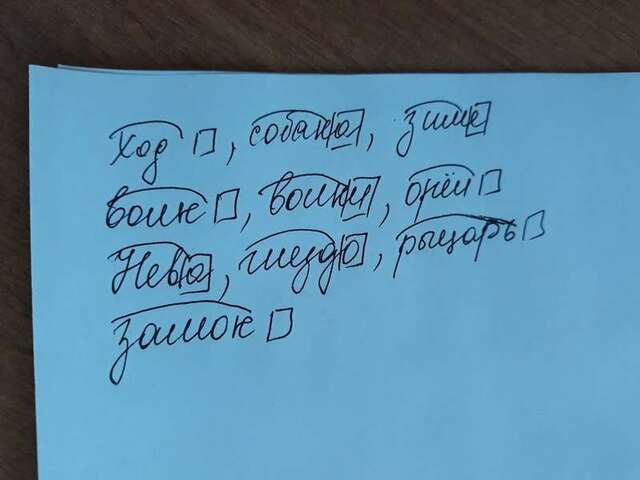 Ход , собака, зиме
волк , волки, орёл
Нева, гнездо, рыцарь
замок